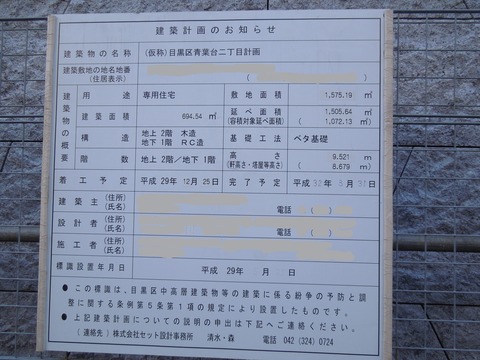 建築計画のお知らせ
建築物の名称 (仮称)目黒区青葉台二丁目計画
建築敷地の地名地番
(住居表示) ( )
建築物の概要
用途 専用住宅 敷地面積 1,575.19 ㎡
建築面積 694.54 ㎡ 延べ面積 1,505.64 ㎡
(容積対象延べ面積) ( 1,072.13 ㎡)
構造 地上 2階 木造 基礎工法 ベタ基礎
地下 1階 RC造
階数 地上 2階/地下 1階 高さ 9.521 m
(軒高さ・塔屋等高さ) ( 8.679 m)
着工予定 平成 29年 12月 25日 完了予定 平成 32年 月 31日
建築主 (住所)
(氏名) 電話 ( )
設計者 (住所)
(氏名) 電話 ( )
施工者 (住所)
(氏名) 電話 ( )
標識設置年月日 平成 29年 月 日
● この標識は、目黒区中高層建築物等の建築に係る紛争の予防と調
整に関する条例第5条第1項の規定により設置したものです。
● 上記建築計画についての説明の申出は下記へご連絡ください。
(連絡先) 株式会社セット設計事務所 清水・森 電話 042 (324) 0724